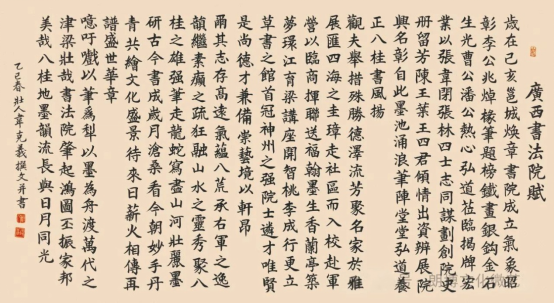 廣西書法院賦
歲在己亥邕城煥章書院成立氣象昭
彰李公兆焯椽筆題榜鐵畫銀鈎金石
生光曹公潘公熱心弘道莅臨揭牌宏
業以張韋閉張林四士志同謀劃創院史
册留芳陳王葉王四君傾情出資辦展院
興名彰自此墨池涌浪筆陣堂堂弘道養
正八桂書風揚
觀夫舉措殊勝德澤流芳聚名家於雅
展匯四海之圭璋走社區而入校赴軍
營以臨商揮聯送福翰墨生香蘭亭築
夢環江育梁講座開智桃李成行更立
草書之館首冠神州之强院士遴才唯賢
是尚德才兼備崇藝境以軒昂
爾其志存高遠氣蘊八荒承右軍之逸
韻繼素癲之疏狂融山水之靈秀聚八
桂之雄强筆走龍蛇寫盡山河壯麗墨
研古今書成歲月滄桑看今朝妙手丹
青共繪文化盛景待來日薪火相傳再
譜盛世華章
噫吁戲以筆為犁以墨為舟渡萬代之
津梁壯哉書法院肇起鴻圖丕振家邦
美哉八桂地墨韻流長與日月同光
乙巳春壯人韋克義撰文并書